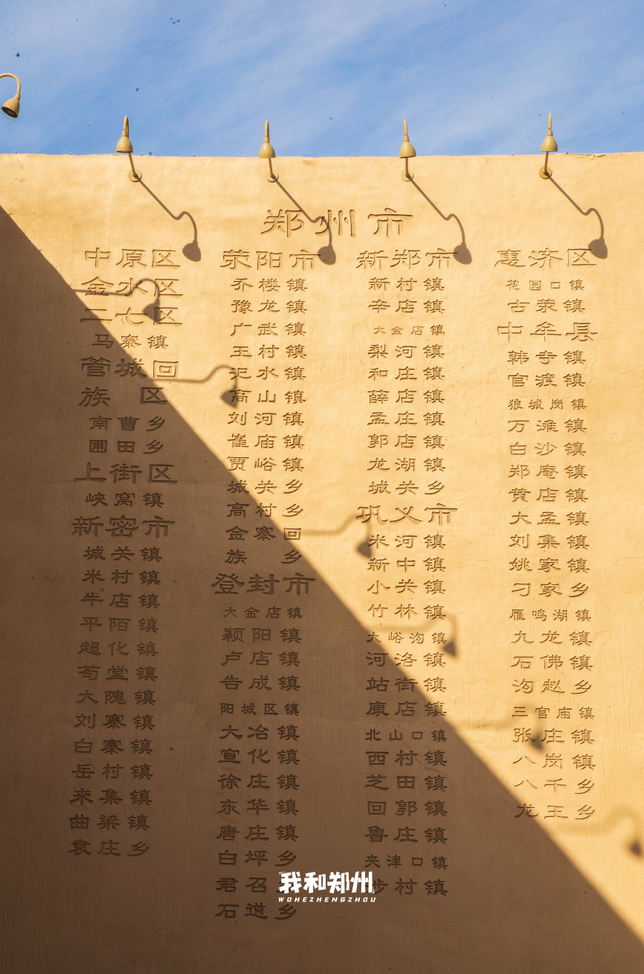 郑州市
中原区
金水区
二七区
马寨镇
管城回
族区
南曹乡
圃田乡
上街区
峡窝镇
新密市
城关镇
米村镇
牛店镇
平陌镇
超化镇
苟堂镇
大隗镇
刘寨镇
白寨镇
岳村镇
来集镇
曲梁镇
袁庄乡
荥阳市
乔楼镇
豫龙镇
广武镇
王村镇
汜水镇
高山镇
刘河镇
崔庙镇
贾峪镇
城关乡
高村乡
金寨回
族乡
登封市
大金店镇
颖阳镇
卢店镇
告成镇
阳城区镇
大冶镇
宣化镇
徐庄镇
东华镇
唐庄镇
白坪乡
君召乡
石道乡
新郑市
新村镇
辛店镇
大金店镇
梨河镇
和庄镇
薛店镇
孟庄镇
郭店镇
龙湖镇
城关乡
巩义市
米河镇
新中镇
小关镇
竹林镇
大峪沟镇
河洛镇
站街镇
康店镇
北山口镇
西村镇
芝田镇
回郭镇
鲁庄镇
夹津口镇
村镇
惠济区
花园口镇
古荥镇
中牟县
韩寺镇
官渡镇
狼城岗镇
万滩镇
白沙镇
郑庵镇
黄店镇
大孟镇
刘集镇
姚家镇
刁家乡
雁鸣湖镇
九龙镇
石佛镇
沟赵乡
三官庙镇
张庄镇
八岗镇
八千乡
龙王乡
我和郑州
WOHEZHENGZHOU